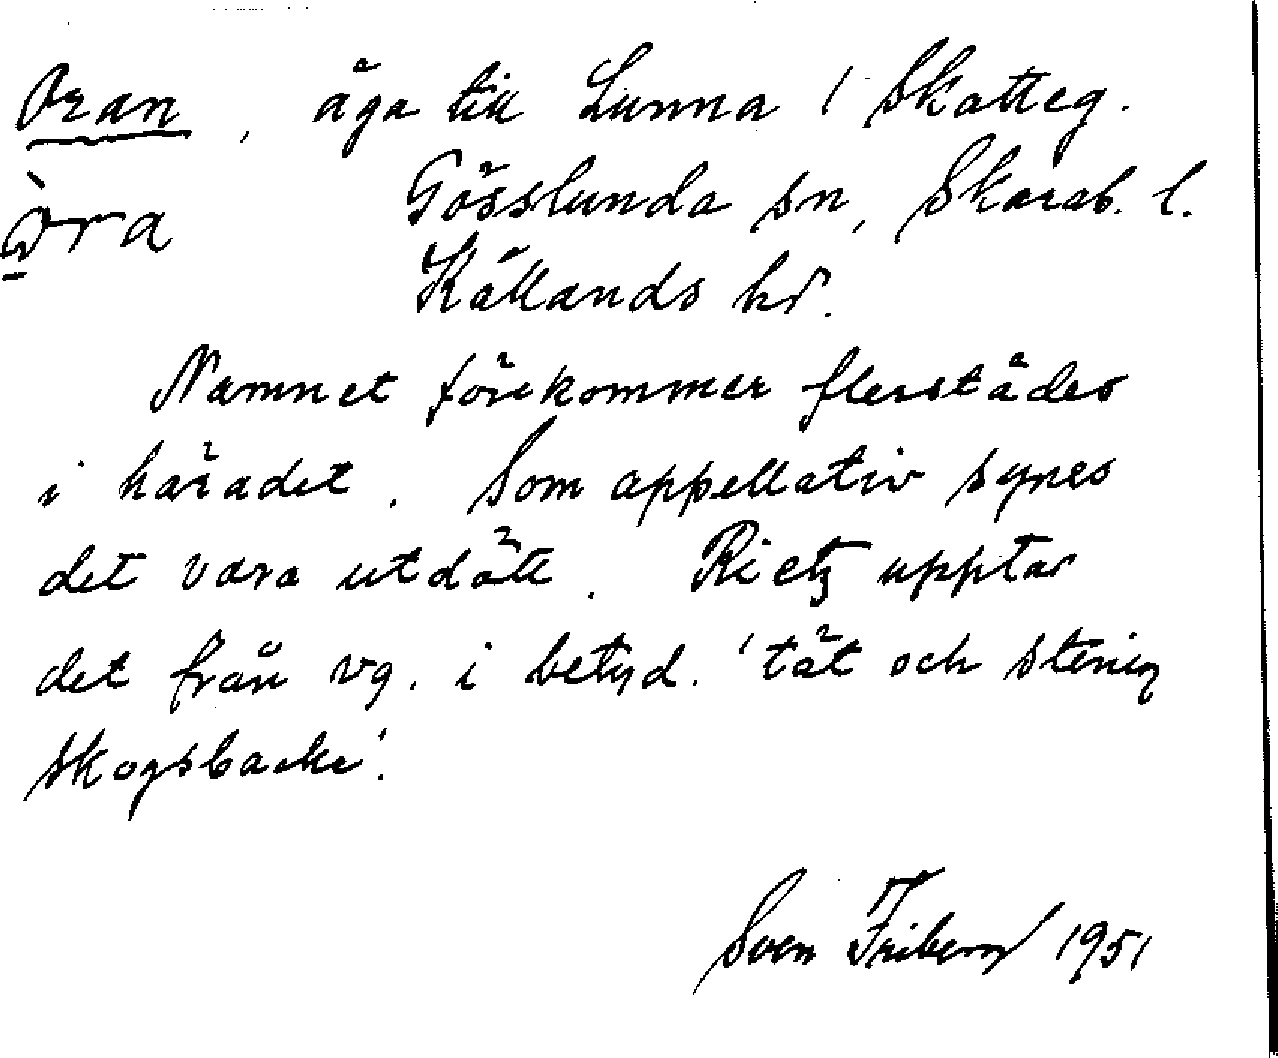 Oran, äga till Lunna 1 Skatteg.
òra Gösslunda sn, Skarab. l.
Kållands hd.
Namnet förekommer flerstädes
i häradet. Som appellativ synes
det vara utdött. Rietz upptar
det från vg. i betyd. 'tät och stenig
skogsbacke'.
Sven Friberg 1951